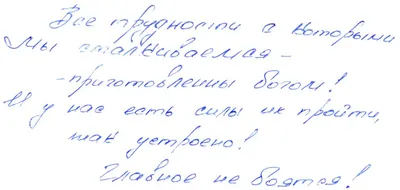 Все трудности с которыми
мы сталкиваемся -
- приготовленны богом!
И у нас есть силы их пройти,
так устроено!
Главное не боятся!